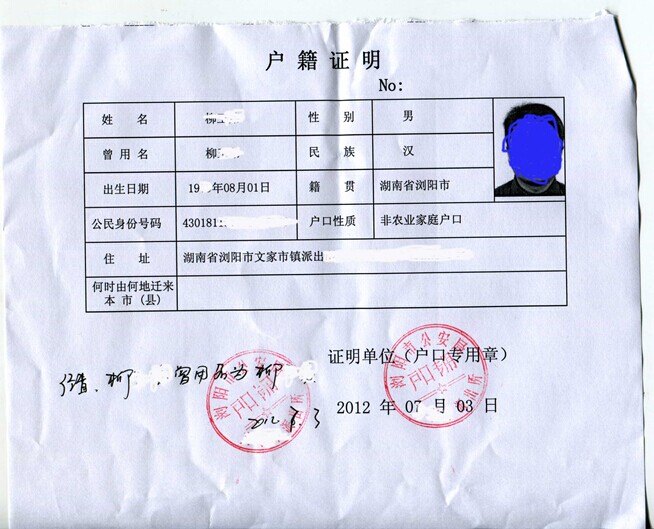 户籍证明
No:
姓名 柳 性别 男
曾用名 柳 民族 汉
出生日期 19 年08月01日 籍贯 湖南省浏阳市
公民身份号码 430181 户口性质 非农业家庭户口
住址 湖南省浏阳市文家市镇派出
何时由何地迁来
本市(县)
证明单位(户口专用章)
经查,柳 曾用名为柳
2012 年 07 月 03 日
2012. 3
浏阳市公安局
户口专用
浏阳市公安局
户口专用
派出所